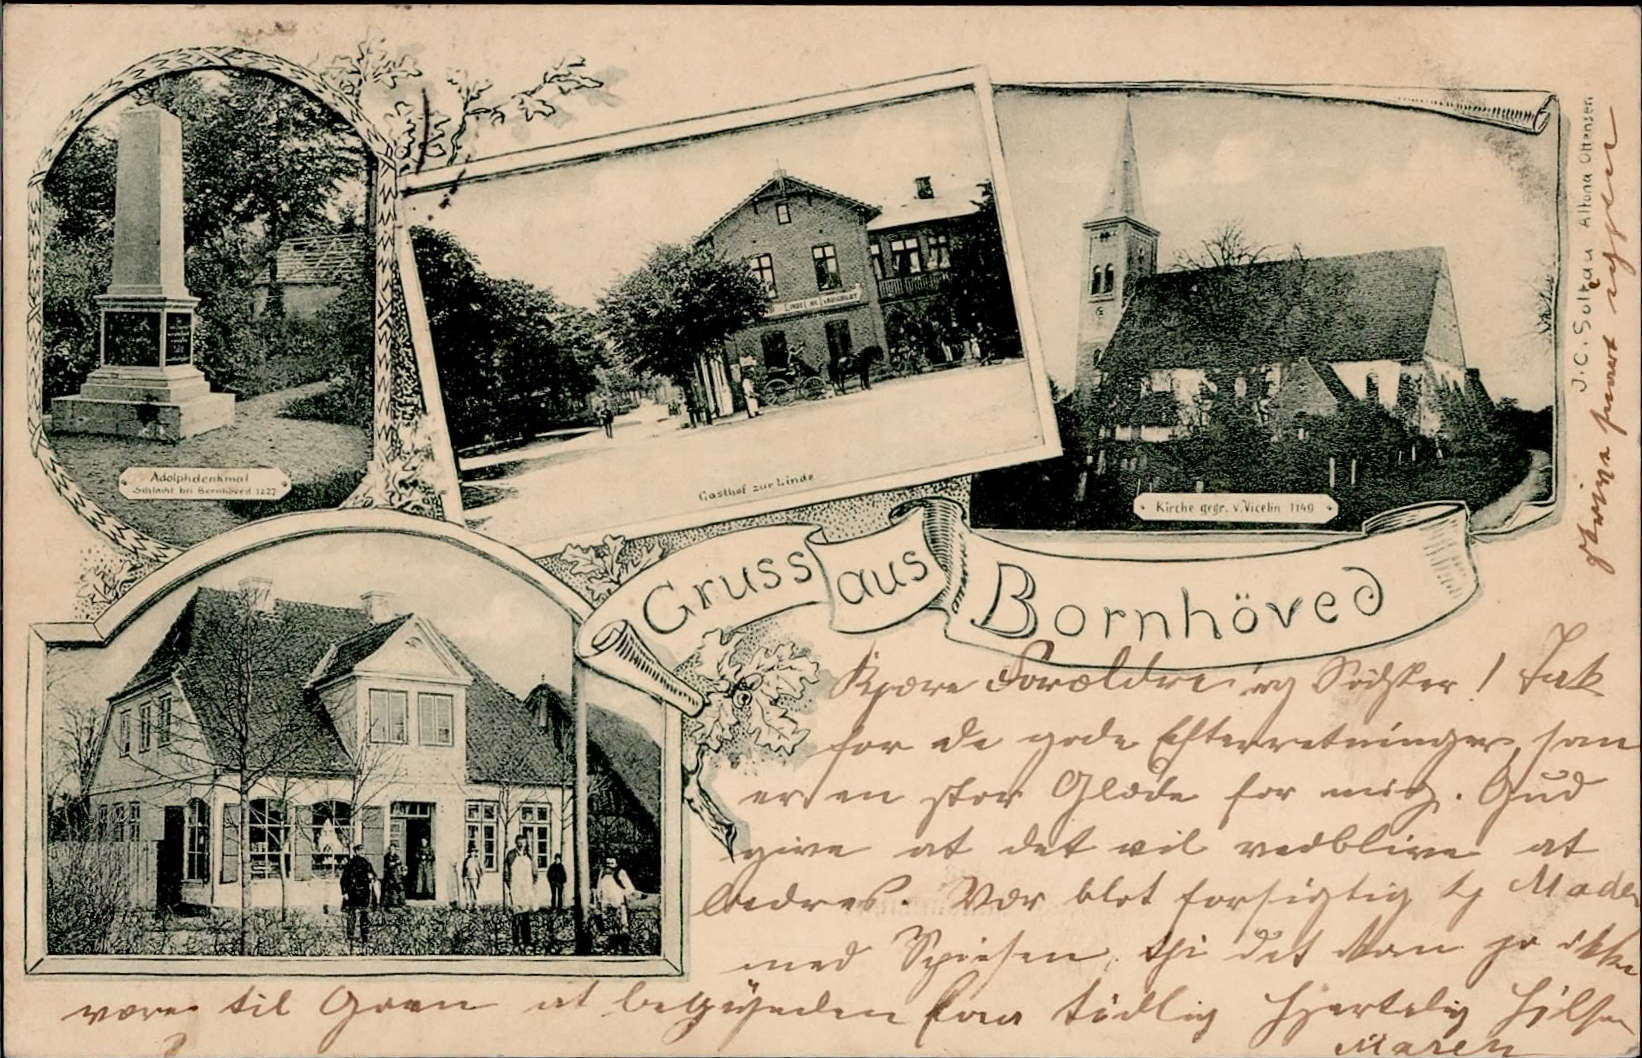 Adolphdenkmal
Schlacht bei Bornhöved 1227
Gasthof zur Linde
Kirche gegr. v. Vicelin 1149
J. C. Soltau Altona Ottensen
Gruss aus Bornhöved
Kjære Forældre og Södster! Tak
for de gode Efterretninger, som
er en stor Glæde for mig. Gud
give at det vil vedblive at
bedres. Vær blot forsigtig
med Spisen, thi det kan jo ikke
være til Gavn at
Hjertelig Hilsen
Maren